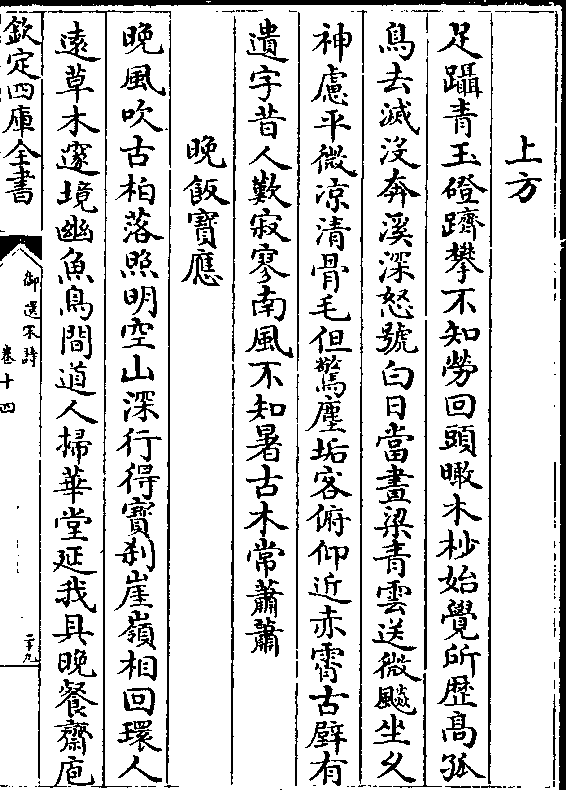 上方
足躡青玉磴躋攀不知勞回頭瞰木杪始覺所歴高孤
鳥去滅没奔溪深怒號白日當晝梁青雲送微飈坐久
神慮平微凉清骨毛但驚塵垢客俯仰近赤霄古壁有
遺字昔人歎寂寥南風不知暑古木常蕭蕭
晚飯寶應
晚風吹古柏落照明空山深行得寶刹崖嶺相回環人
遠草木邃境幽魚鳥間道人掃華堂延我具晚餐齋庖
欽定四庫全書
御選宋詩
卷十四
二十九